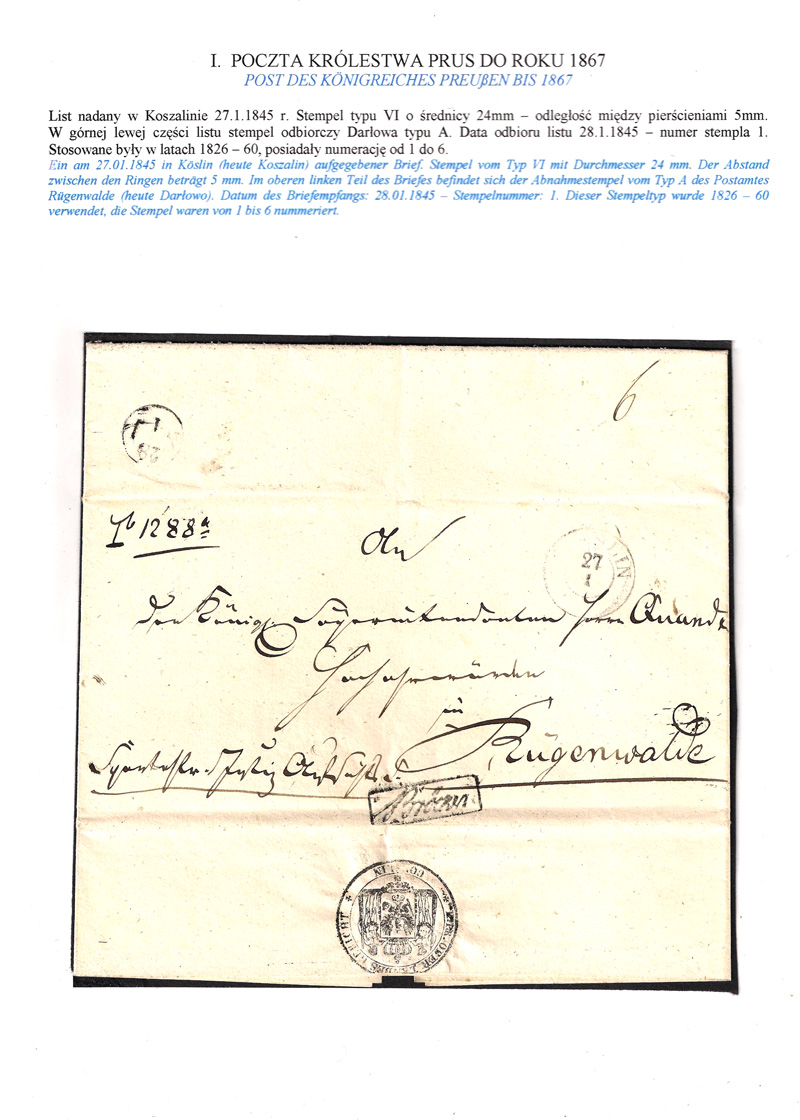 I. POCZTA KRÓLESTWA PRUS DO ROKU 1867
POST DES KÖNIGREICHES PREUßEN BIS 1867
List nadany w Koszalinie 27.1.1845 r. Stempel typu VI o średnicy 24mm – odległość między pierścieniami 5mm.
W górnej lewej części listu stempel odbiorczy Darłowa typu A. Data odbioru listu 28.1.1845 – numer stempla 1.
Stosowane były w latach 1826 – 60, posiadały numerację od 1 do 6.
Ein am 27.01.1845 in Köslin (heute Koszalin) aufgegebener Brief. Stempel vom Typ VI mit Durchmesser 24 mm. Der Abstand
zwischen den Ringen beträgt 5 mm. Im oberen linken Teil des Briefes befindet sich der Abnahmestempel vom Typ A des Postamtes
Rügenwalde (heute Darłowo). Datum des Briefempfangs: 28.01.1845 – Stempelnummer: 1. Dieser Stempeltyp wurde 1826 – 60
verwendet, die Stempel waren von 1 bis 6 nummeriert.
6
1288
An
LIN
27
1
den Königl. Superintendenten Herrn Quandt
Hochehrwürden
in
Rügenwalde